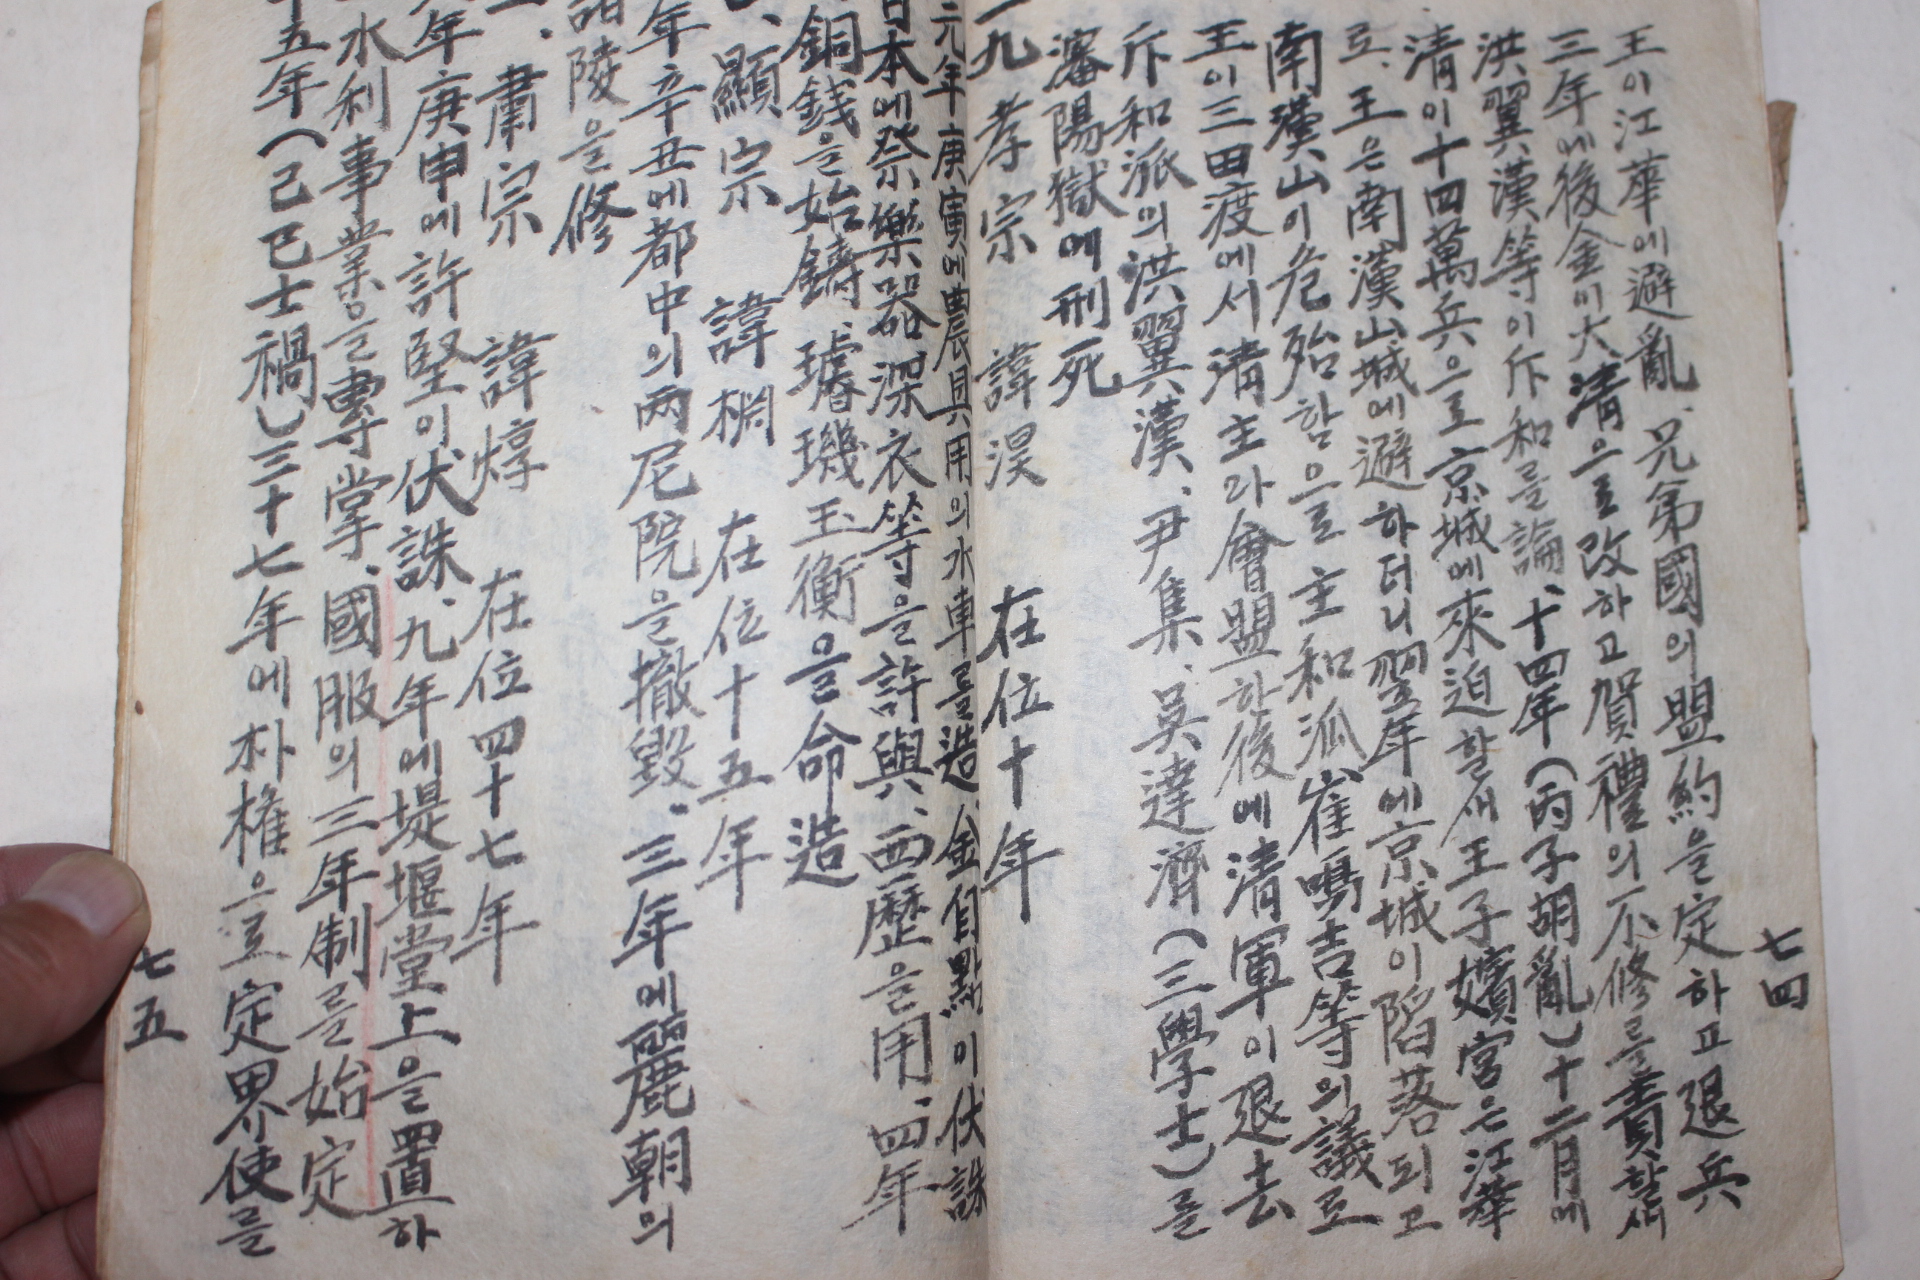 王이江華에避亂、兄弟國의盟約을定하고退兵
三年에後金이大淸으로改하고賀禮의不修를責할새
洪翼漢等이斥和를論、十四年(丙子胡亂)十二月에
淸이十四萬兵으로京城에來迫할새王子嬪宮은江華
로、王은南漢山城에避하더니翌年에京城이陷落되고
南漢山이危殆함으로主和派崔鳴吉等의議로
王이三田渡에서淸主라會盟한後에淸軍이退去
斥和派의洪翼漢、尹集、吳達濟(三學士)를
瀋陽獄에刑死
一九 孝宗 諱淏 在位十年
元年庚寅에農具用의水車를造、金自點이伏誅
日本에祭樂器深衣等을許與、西歷을用、四年
銅錢을始鑄、璿璣玉衡을命造
顯宗 諱棩 在位十五年
年辛丑에都中의两尼院을撤毁、三年에麗朝의
諸陵을修
肅宗 諱焞 在位四十七年
年庚申에許堅이伏誅、九年에堤堰堂上을置하
水利事業을專掌、國服의三年制를始定
十五年(己巳士禍)三十七年에朴權으로定界使를
七四
七五